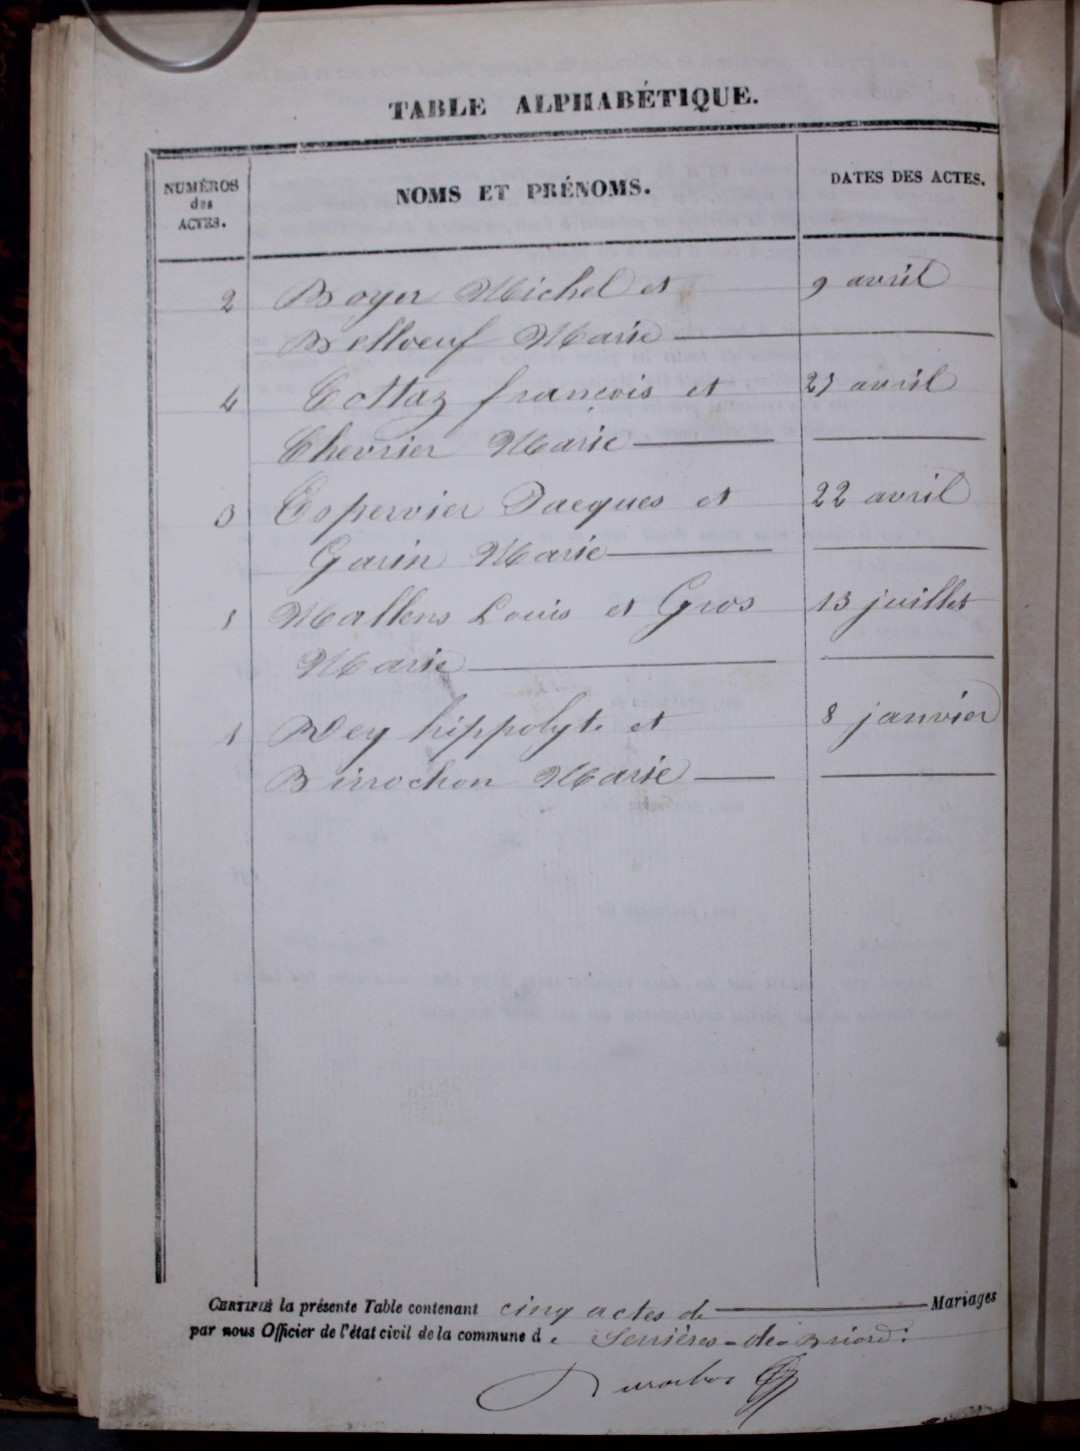 TABLE ALPHABÉTIQUE.
NUMÉROS des ACTES.
NOMS ET PRÉNOMS.
DATES DES ACTES.
2 Boyer Michel et 9 avril
Belloeuf Marie
4 Cottaz françois et 27 avril
Chevrier Marie
3 Espervier Jacques et 22 avril
Garin Marie
5 Mallens Louis et Gros 13 juillet
Marie
1 Rey hippolyte et 8 janvier
Binochon Marie
CERTIFIÉ la présente Table contenant cinq actes de Mariages
par nous Officier de l'état civil de la commune de Serrières-de-Briord: